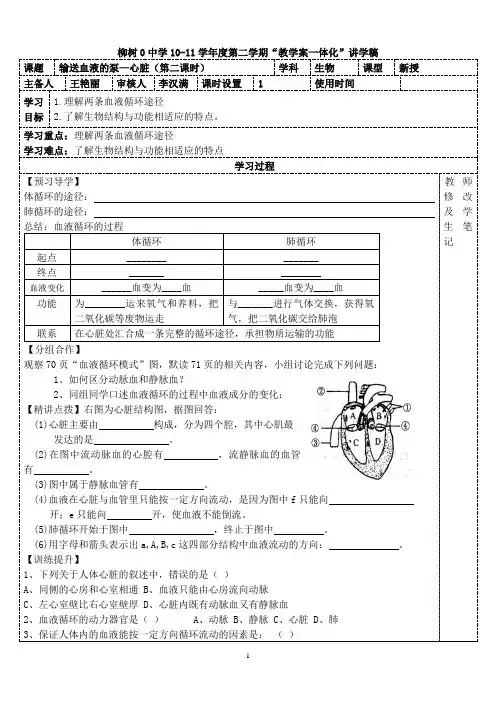 柳树0中学10-11学年度第二学期“教学案一体化”讲学稿
课题 输送血液的泵—心脏（第二课时） 学科 生物 课型 新授
主备人 王艳丽 审核人 李汉满 课时设置 1 使用时间
学习目标 1.理解两条血液循环途径
2.了解生物结构与功能相适应的特点。
学习重点：理解两条血液循环途径
学习难点：了解生物结构与功能相适应的特点
学习过程
【预习导学】
教师修改及学生笔记
体循环的途径：
肺循环的途径：
总结：血液循环的过程
体循环 肺循环
起点 ________ _______
终点 _______ ________
血液变化 ______血变为____血 _____血变为____血
功能 为________运来氧气和养料，把二氧化碳等废物运走 与_______进行气体交换，获得氧气，把二氧化碳交给肺泡
联系 在心脏处汇合成一条完整的循环途径，承担物质运输的功能
【分组合作】
观察70页“血液循环模式”图，默读71页的相关内容，小组讨论完成下列问题：
1、如何区分动脉血和静脉血？
2、同组同学口述血液循环的过程中血液成分的变化：
【精讲点拨】右图为心脏结构图，据图回答：
(1)心脏主要由 构成，分为四个腔，其中心肌最
发达的是 。
(2)在图中流动脉血的心腔有 ，流静脉血的血管
有 。
② ① ④ ④ ③ A B C D
(3)图中属于静脉血管有 。
(4)血液在心脏与血管里只能按一定方向流动，是因为图中f只能向
开；e只能向 开，使血液不能倒流。
(5)肺循环开始于图中 ，终止于图中 。
(6)用字母和箭头表示出a,A,B,c这四部分结构中血液流动的方向： 。
【训练提升】
1、下列关于人体心脏的叙述中，错误的是（ ）
A、同侧的心房和心室相通 B、血液只能由心房流向动脉
C、左心室壁比右心室壁厚 D、心脏内既有动脉血又有静脉血
2、血液循环的动力器官是（ ） A、动脉 B、静脉 C、心脏 D、肺
3、保证人体内的血液能按一定方向循环流动的因素是： （ ）
1